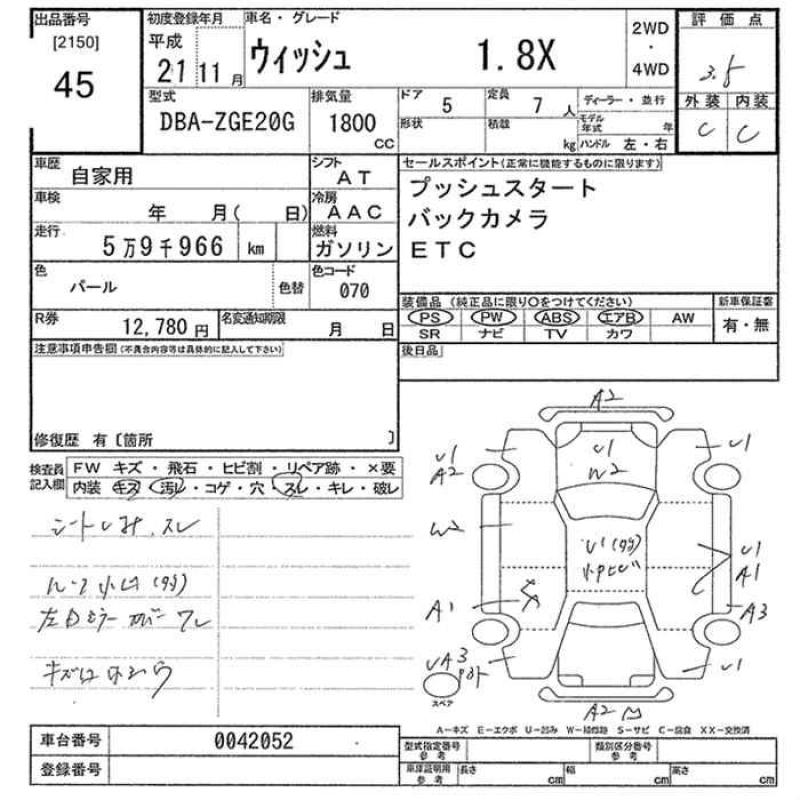 出品番号 初度登録年月 車名・グレード 2WD 評価点
[2150] 平成 ウィッシュ 1.8X ・ 3.5
45 21 11月 4WD
型式 排気量 ドア 5 定員 7人 ディーラー・並行 外装 内装
DBA-ZGE20G 1800 形状 積載 モデル年式 年 C C
CC kg ハンドル 左・右
車歴 自家用 シフト AT セールスポイント(正常に機能するものに限ります)
車検 年 月( 日) 冷房 AAC プッシュスタート
走行 5万9千966 km 燃料 ガソリン バックカメラ
色 パール 色替 色コード 070 ETC
R券 12,780円 名変通知期限 月 日 装備品 (純正品に限り○をつけてください) 新車保証書
PS PW ABS エアB AW 有・無
SR ナビ TV カワ
注意事項申告欄(不具合内容等は具体的に記入して下さい) 後日品
修復歴 有〔箇所 〕
検査員記入欄 FW キズ・飛石・ヒビ割・リペア跡・×要
内装 キズ・汚レ・コゲ・穴・スレ・キレ・破レ
シートシミ.スレ
左ドミラーカバーワレ
A2
U1 U1 U1
A2 W2
W2 U1
A1
A1 A3
UA3 U1
スペア
A2
A-キズ E-エクボ U-凹み W-補修跡 S-サビ C-腐食 XX-交換済
車台番号 0042052 型式指定番号 参考 類別区分番号 参考
登録番号 車庫証明用 参考 長さ cm 幅 cm 高さ cm